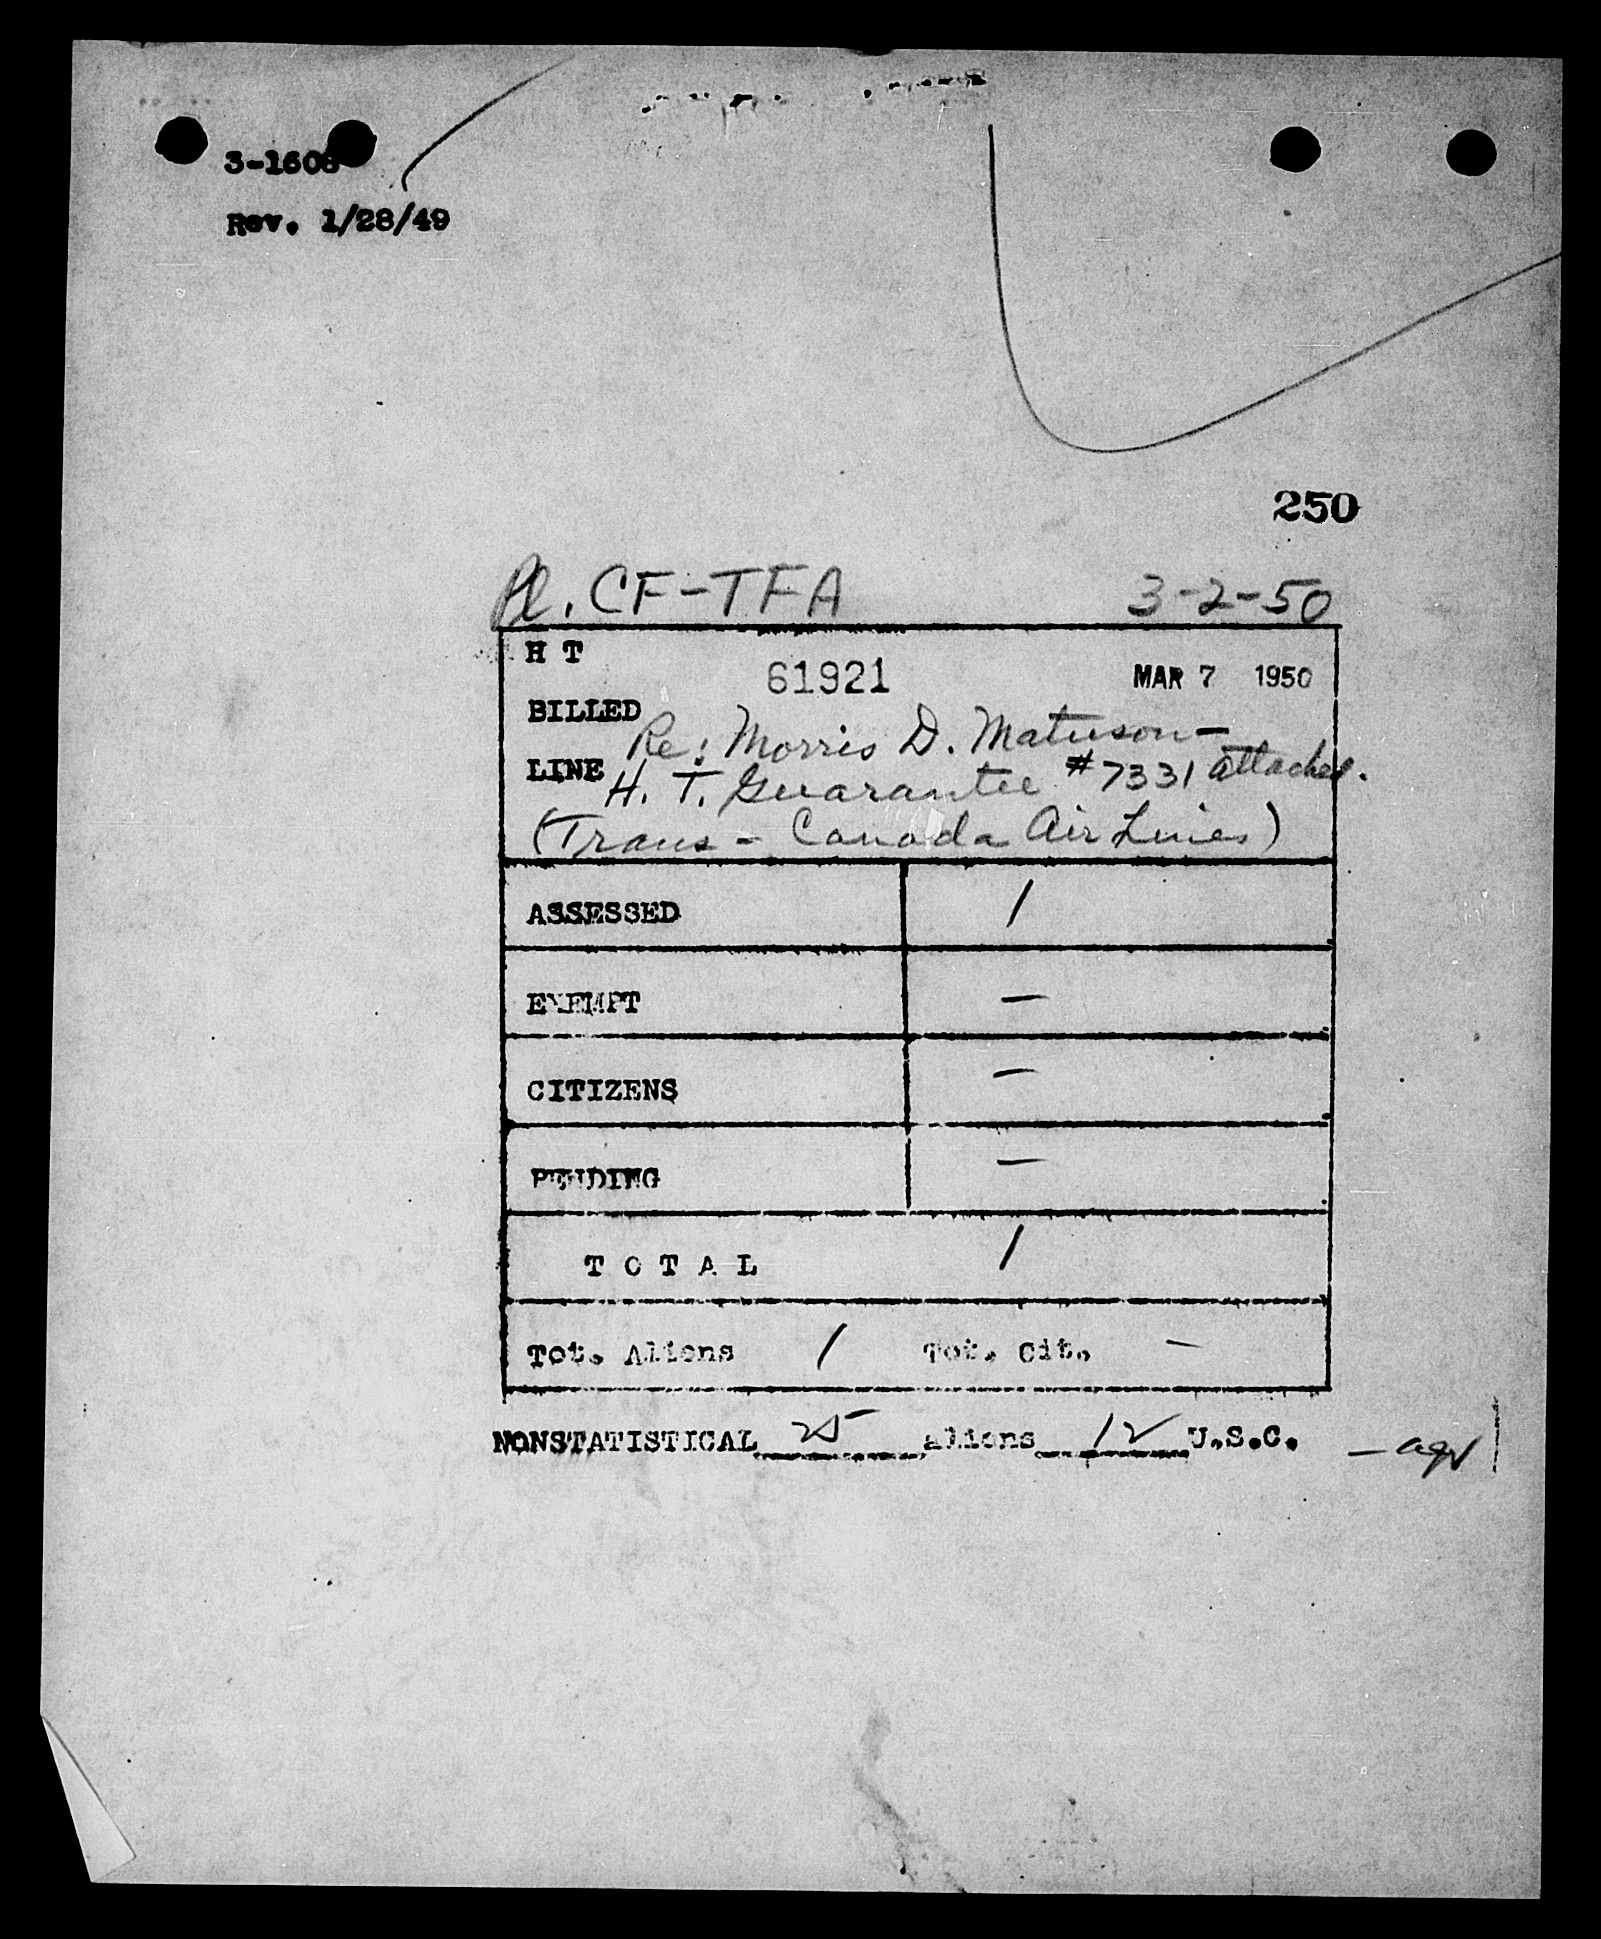 3-1608
Rev. 1/28/49
250
Pl. CF-TFA 3-2-50
H T
61921 MAR 7 1950
BILLED
Re: Morris D. Matuson-
LINE H. T. Guarantee #7331 attached.
(Trans-Canada Air Lines)
ASSESSED 1
EXEMPT -
CITIZENS -
PENDING -
T O T A L 1
Tot. Aliens 1 Tot. Cit. -
NONSTATISTICAL 25 Aliens 12 U.S.C.